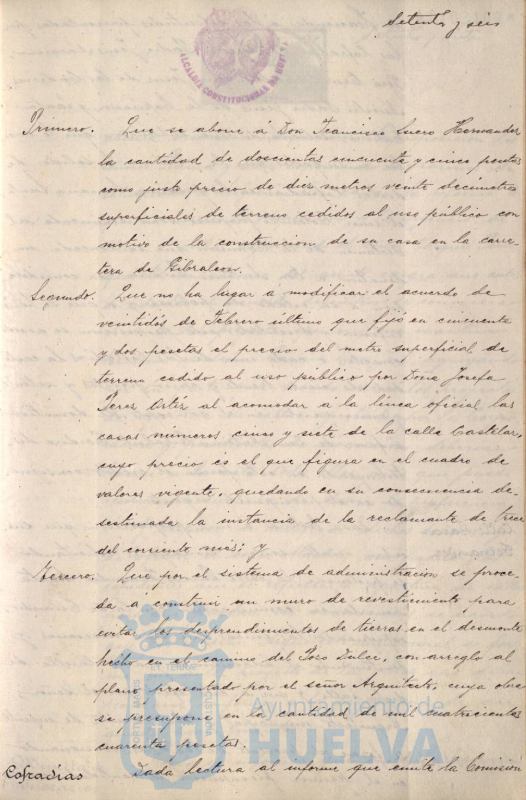 Setenta y seis
ALCALDIA CONSTITUCIONAL DE HUELVA
Primero. Que se abone á Don Francisco Suero Hernandez
la cantidad de doscientas cincuenta y cinco pesetas
como justo precio de diez metros veinte decímetros
superficiales de terreno cedidos al uso público con
motivo de la construccion de su casa en la carre-
tera de Gibraleon.
Segundo. Que no ha lugar a modificar el acuerdo de
veintidós de Febrero último que fijó en cincuenta
y dos pesetas el precio del metro superficial de
terreno cedido al uso público por Doña Josefa
Perez Ortíz al acomodar a la línea oficial las
casas números cinco y siete de la calle Castelar,
cuyo precio és el que figura en el cuadro de
valores vigente, quedando en su consecuencia de-
sestimada la instancia de la reclamante de trece
del corriente mes; y
Tercero. Que por el sistema de administracion se proce-
da a construir un muro de revestimiento para
evitar los desprendimientos de tierras en el desmonte
hecho en el camino del Pozo Dulce, con arreglo al
plano presentado por el señor Arquitecto, cuya obra
se presupone en la cantidad de mil cuatrocientas
cuarenta pesetas.
Ayuntamiento de
HUELVA
Cofradías Dada lectura al informe que emite la Comisión